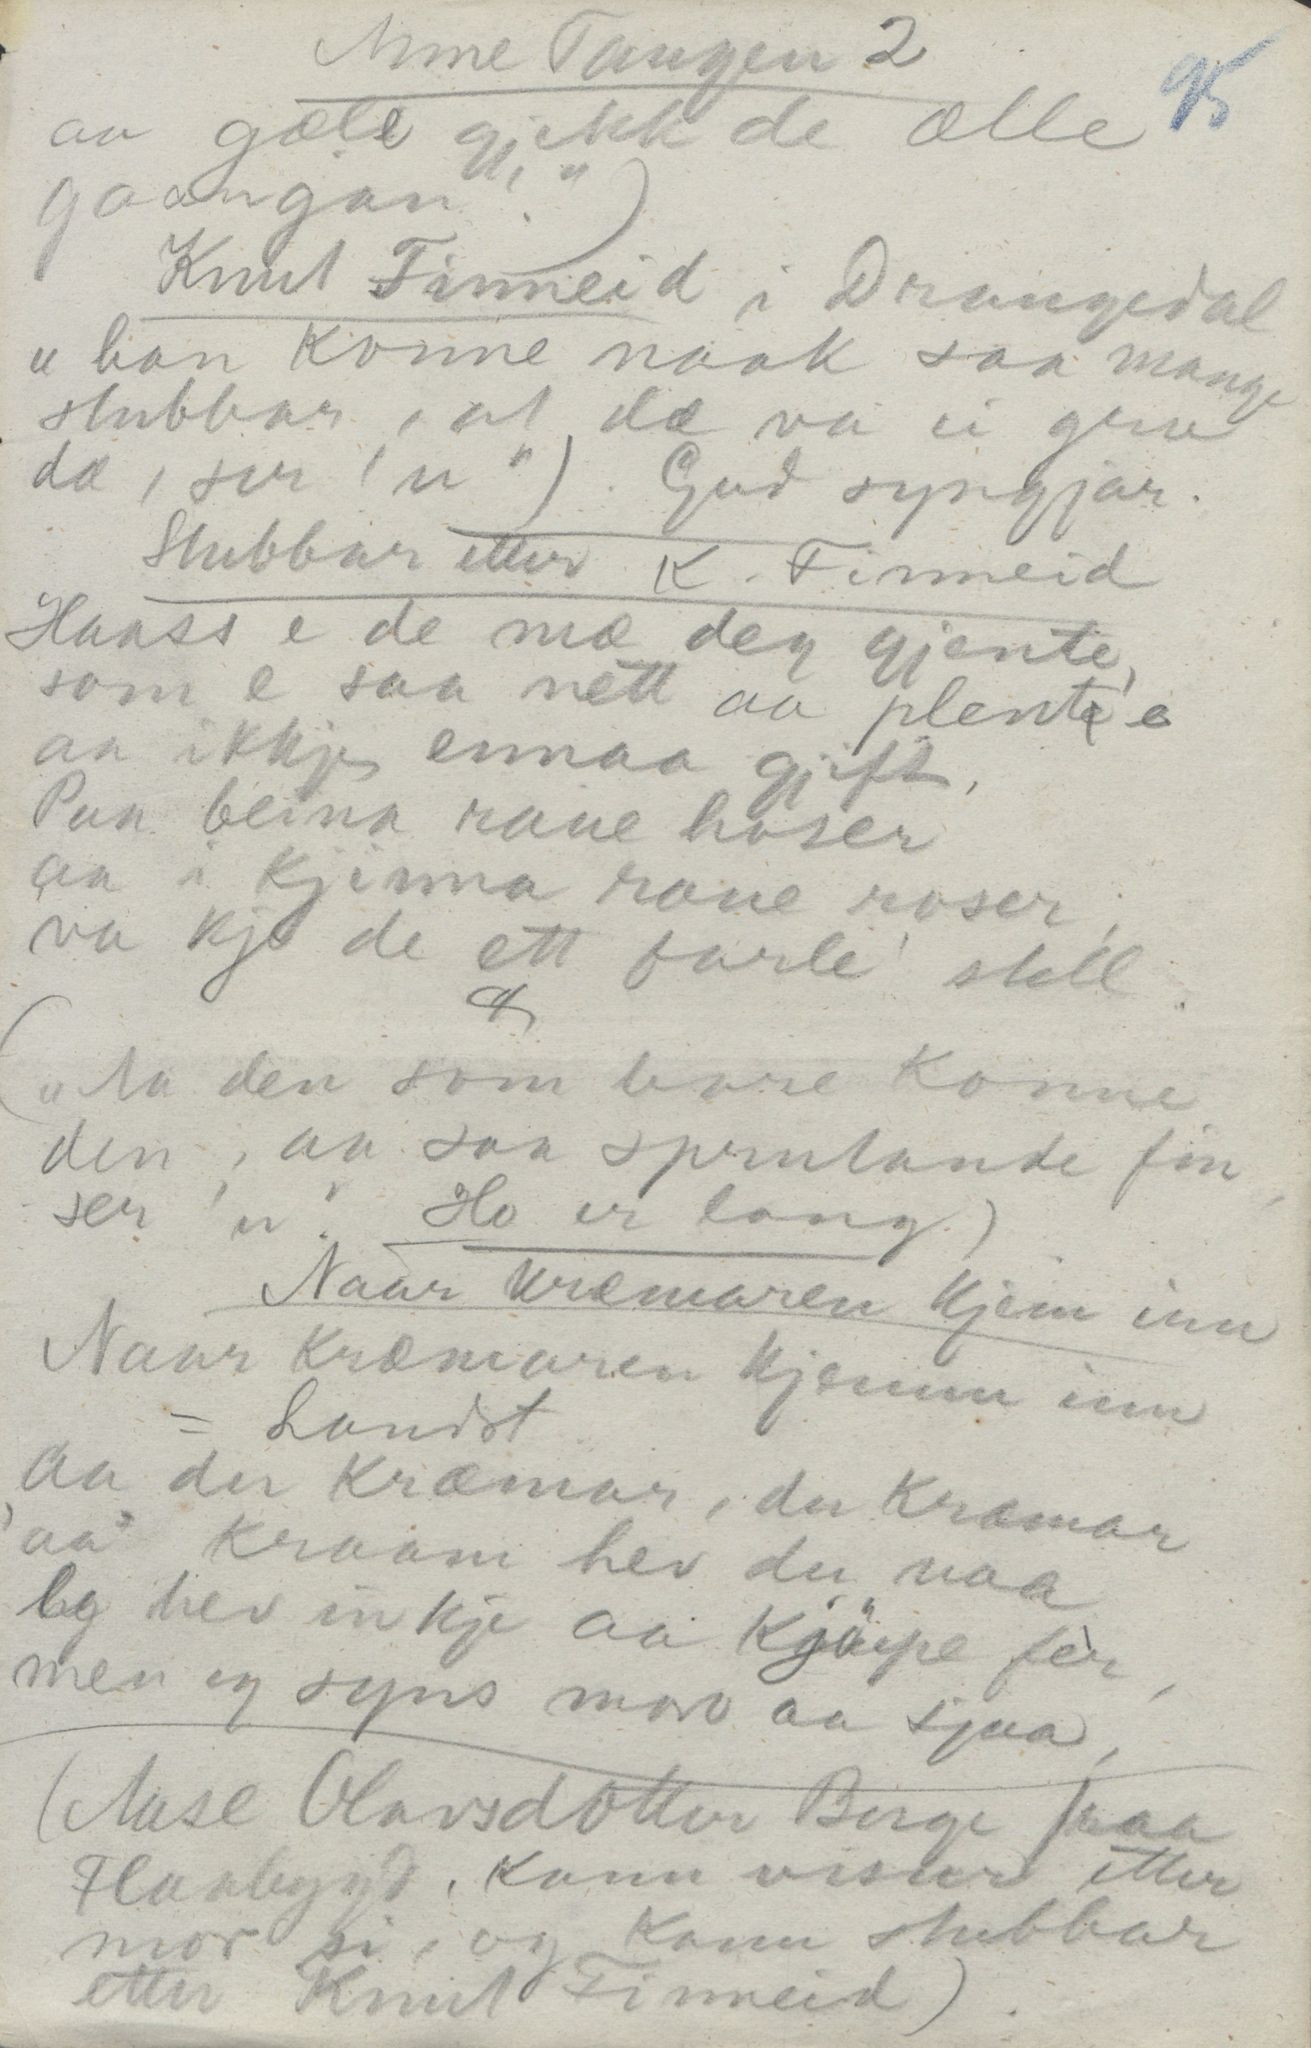 Anne Tangen 2
95
aa gæle gjekk de ælle
gaangan".")
Knut Finneid i Drangedal
"han konne naak saa mange
stubbar, at dæ va ei gru
dæ, ser 'u"). God syngjar.
Stubbar etter K. Finneid
Haass e de mæ deg gjente,
som e saa nett aa plente
aa ikkje ennaa gjift,
Paa beina raue hoser
aa i kjinna raue roser,
va kje de ett farle' stell.
("Aa den som bare konne
den, aa saa sprutande fin,
ser 'u". Ho er lang)
Naar kræmaren kjem inn
Naar kræmaren kjemm inn
= Landst
Aa du kræmar, du kræmar
'aa' kraam hev du naa
Eg hev inkje aa kjöpe fer,
men eg syns moro aa sjaa,
(Aase Olavsdotter Berge paa
Flaabygd, kann visur etter
mor si, og kann stubbar
etter Knut Finneid).